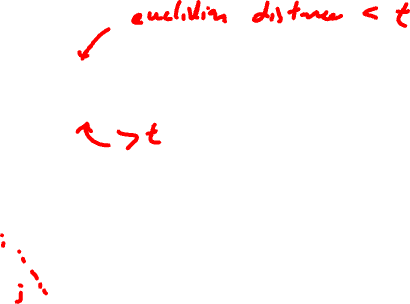 euclidian distance < t
> t
i
j